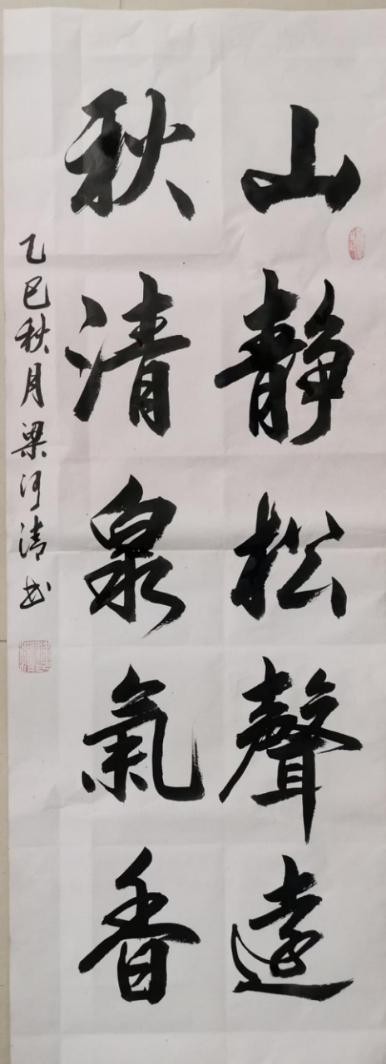 山靜松聲遠
秋清泉氣香
乙巳秋月梁河清书